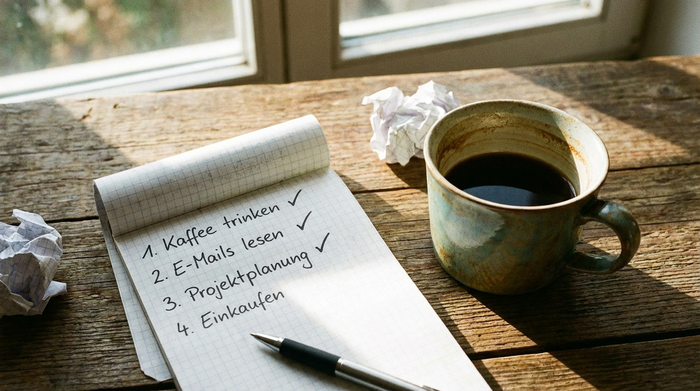 1. Kaffee trinken ✓
2. E-Mails lesen ✓
3. Projektplanung ✓
4. Einkaufen